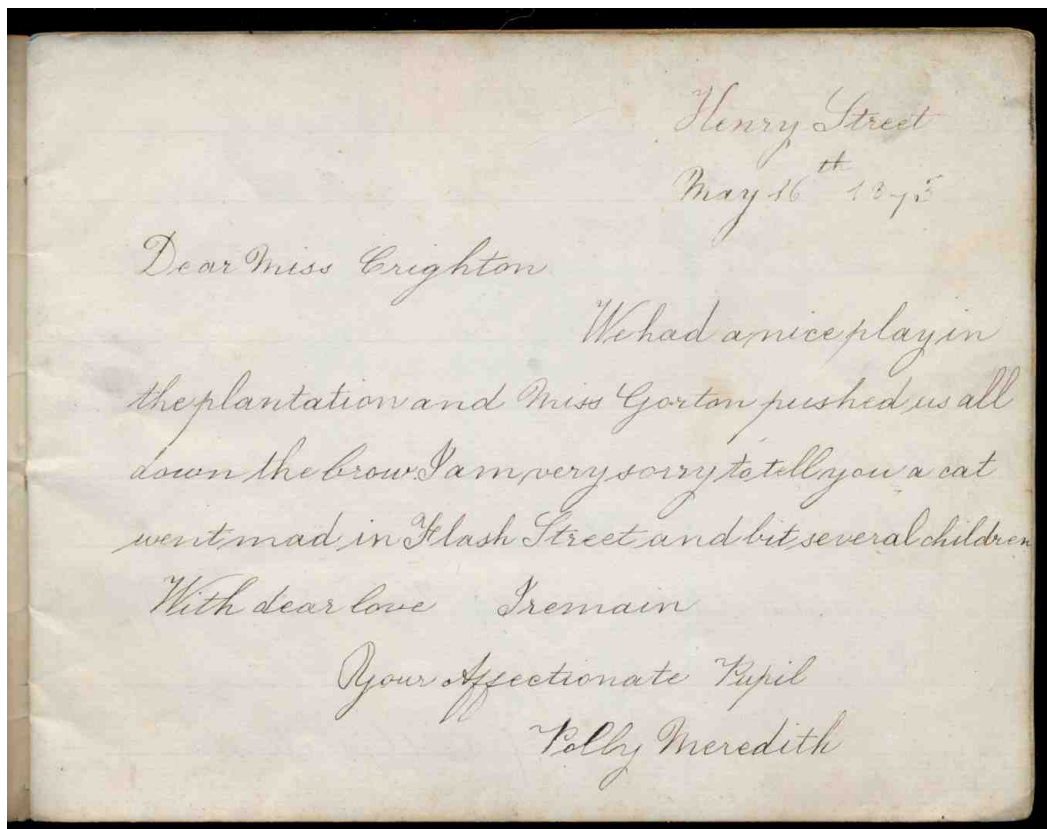 Henry Street
May 16th 1873
Dear Miss Crighton
We had a nice play in
the plantation and Miss Gorton pushed us all
down the brow. I am very sorry to tell you a cat
went mad in Flash Street and bit several children
With dear love I remain
Your Affectionate Pupil
Polly Meredith